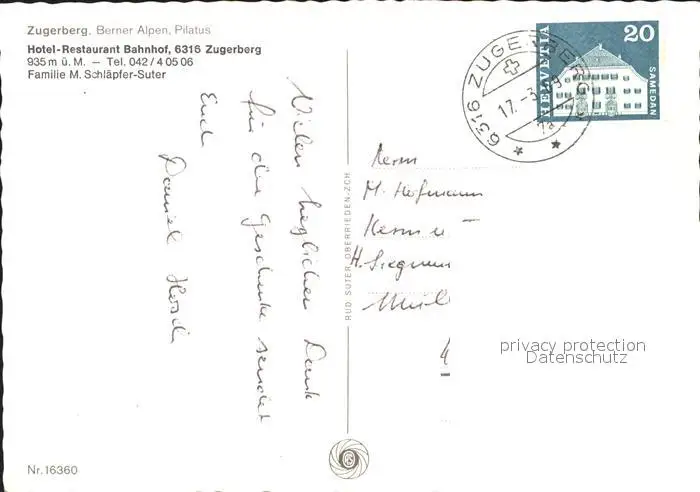 Zugerberg, Berner Alpen, Pilatus
Hotel-Restaurant Bahnhof, 6316 Zugerberg
935 m ü. M. – Tel. 042 / 4 05 06
Familie M. Schläpfer-Suter
Vielen herzlichen Dank
für die Geschenke sendet
Euch
Daniel
RUD. SUTER, OBERRIEDEN-ZCH.
6316 ZUGERBERG
17.-3.
HELVETIA
20
SAMEDAN
Herrn
M. Hofmann
Herrn
H.
privacy protection
Datenschutz
Nr. 16360